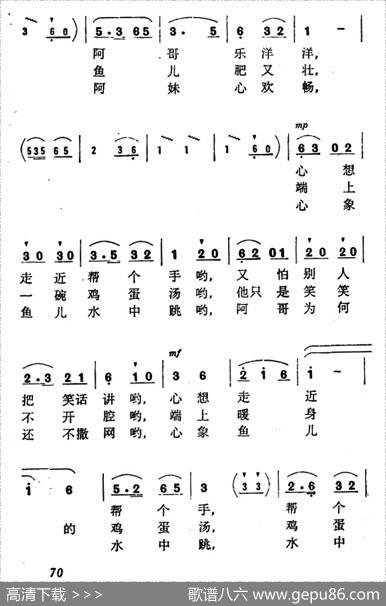 3 6 0) | 5·3 6 5 | 3· 5 | 6 3 2 | 1 - |
阿 哥 乐 洋 洋,
鱼 儿 肥 又 壮,
阿 妹 心 欢 畅,
mp
(5 3 5 6 5 | 2 3 6 | 1 1 | 1 6 0) | 6 3 0 2 |
心 想
端 上
心 象
3 0 3 0 | 3·5 3 2 | 1 2 0 | 6 2 0 1 | 2 0 2 0 |
走 近 帮 个 手 哟, 又 怕 别 人
一 碗 鸡 蛋 汤 哟, 他 只 是 笑 笑
鱼 儿 水 中 跳 哟, 阿 哥 为 何
mf
2·3 2 1 | 6 1 0 | 3 6 | 2 1 6 | 1 - |
把 笑 话 讲 哟, 心 想 走 近
不 开 腔 哟, 端 上 暖 身
还 不 撒 网 哟, 心 象 鱼 儿
1 6 | 5·2 6 5 | 3 (3 3) | 2·6 3 2 |
帮 个 手, 帮 个
的 鸡 蛋 汤, 鸡 蛋
水 中 跳, 水 中
70
高清下载 >>>
歌谱八六 www.gepu86.com